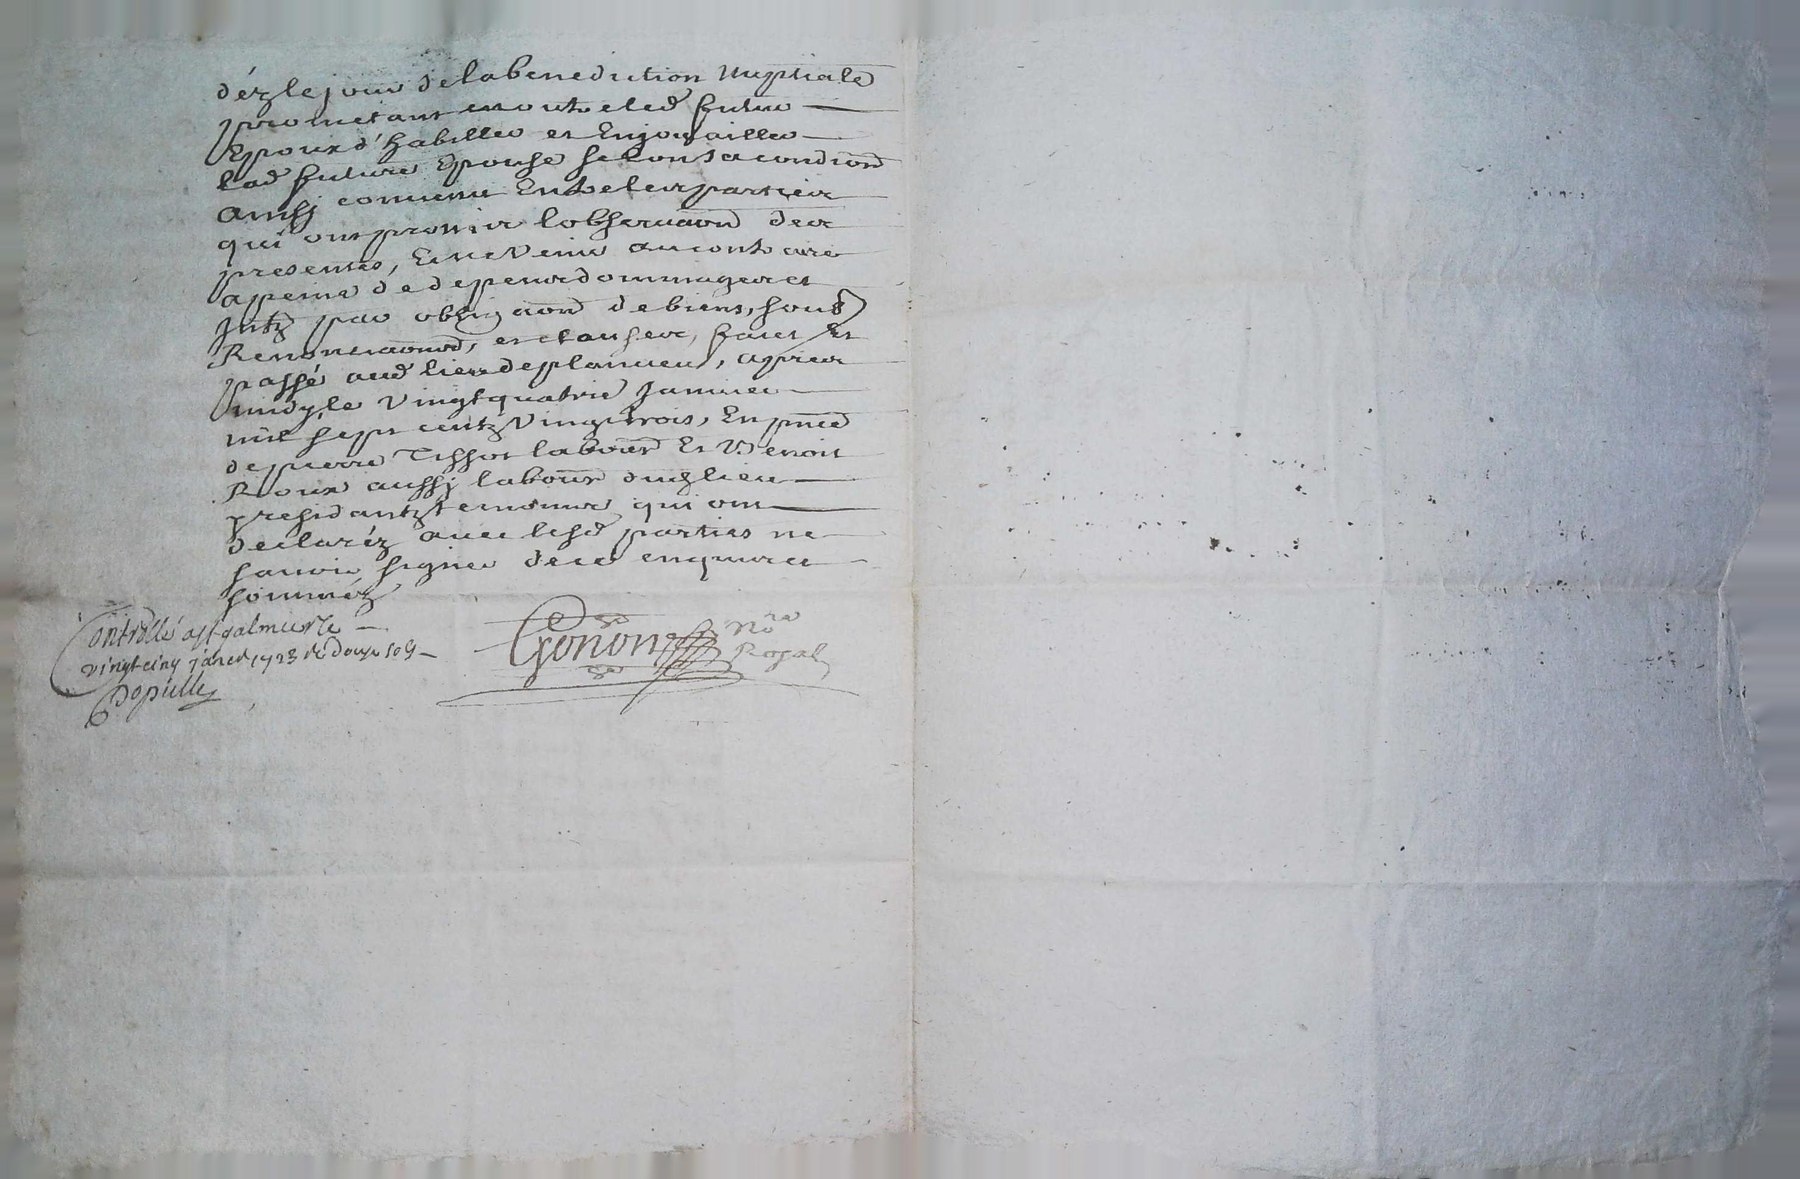 déz le jour de la benediction Nuptiale
prometant en outre led futur
Epoux d'habiller et Enjouailler
lad future Epouse selon sa condion
ainssj convenu Entre les parties
qui ont promis lobservaõn des
presentes, Et ne venir au contraire
a peine de depens dommages et
Jntz par obligaõn de biens, sous
Renontiaõns, et clauses, fait Et
passé aud lieu de planieu, apres
midy, le vingtquatrie Janvier
mil sept centz vingt trois, En pñce
de pierre Tissot labour Et Benoit
Roux aussj labour dud lieu
presidantz temoins qui ont
declaréz avec lesd parties ne
savoir signer de ce enquis et
somméz
Controllé a st galmier le
vingt cinq janer 1723 R douze sols
Dopulle
Gonon Nore
Royal